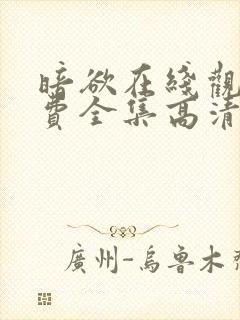 暗欲在綫觀
費全集高清
廣州-烏魯木齊